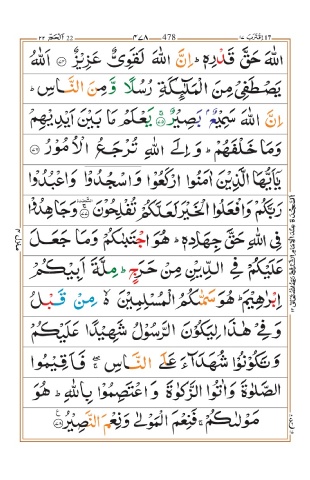 اقترب ١٧ 478 ٤٧٨ الحج ٢٢ 22
اللّٰهَ حَقَّ قَدْرِهٖ ؕ اِنَّ اللّٰهَ لَقَوِیٌّ عَزِیْزٌ ﴿۷۴﴾ اَللّٰهُ
یَصْطَفِیْ مِنَ الْمَلٰٓىِٕكَةِ رُسُلًا وَّ مِنَ النَّاسِ ؕ
اِنَّ اللّٰهَ سَمِیْعٌۢ بَصِیْرٌ ﴿۷۵﴾ یَعْلَمُ مَا بَیْنَ اَیْدِیْهِمْ
وَمَا خَلْفَهُمْ ؕ وَاِلَی اللّٰهِ تُرْجَعُ الْاُمُوْرُ ﴿۷۶﴾
یٰۤاَیُّهَا الَّذِیْنَ اٰمَنُوا ارْكَعُوْا وَاسْجُدُوْا وَاعْبُدُوْا
رَبَّكُمْ وَافْعَلُوا الْخَیْرَ لَعَلَّكُمْ تُفْلِحُوْنَ ﴿۷۷﴾ وَجَاهِدُوْا
فِی اللّٰهِ حَقَّ جِهَادِهٖ ؕ هُوَ اجْتَبٰىكُمْ وَمَا جَعَلَ
عَلَیْكُمْ فِی الدِّیْنِ مِنْ حَرَجٍ ؕ مِلَّةَ اَبِیْكُمْ
اِبْرٰهِیْمَ ؕ هُوَ سَمّٰىكُمُ الْمُسْلِمِیْنَ ۙ۬ مِنْ قَبْلُ
وَفِیْ هٰذَا لِیَكُوْنَ الرَّسُوْلُ شَهِیْدًا عَلَیْكُمْ
وَتَكُوْنُوْا شُهَدَآءَ عَلَی النَّاسِ ۖۚ فَاَقِیْمُوا
الصَّلٰوةَ وَاٰتُوا الزَّكٰوةَ وَاعْتَصِمُوْا بِاللّٰهِ ؕ هُوَ
مَوْلٰىكُمْ ۚ فَنِعْمَ الْمَوْلٰی وَنِعْمَ النَّصِیْرُ ﴿۷۸﴾